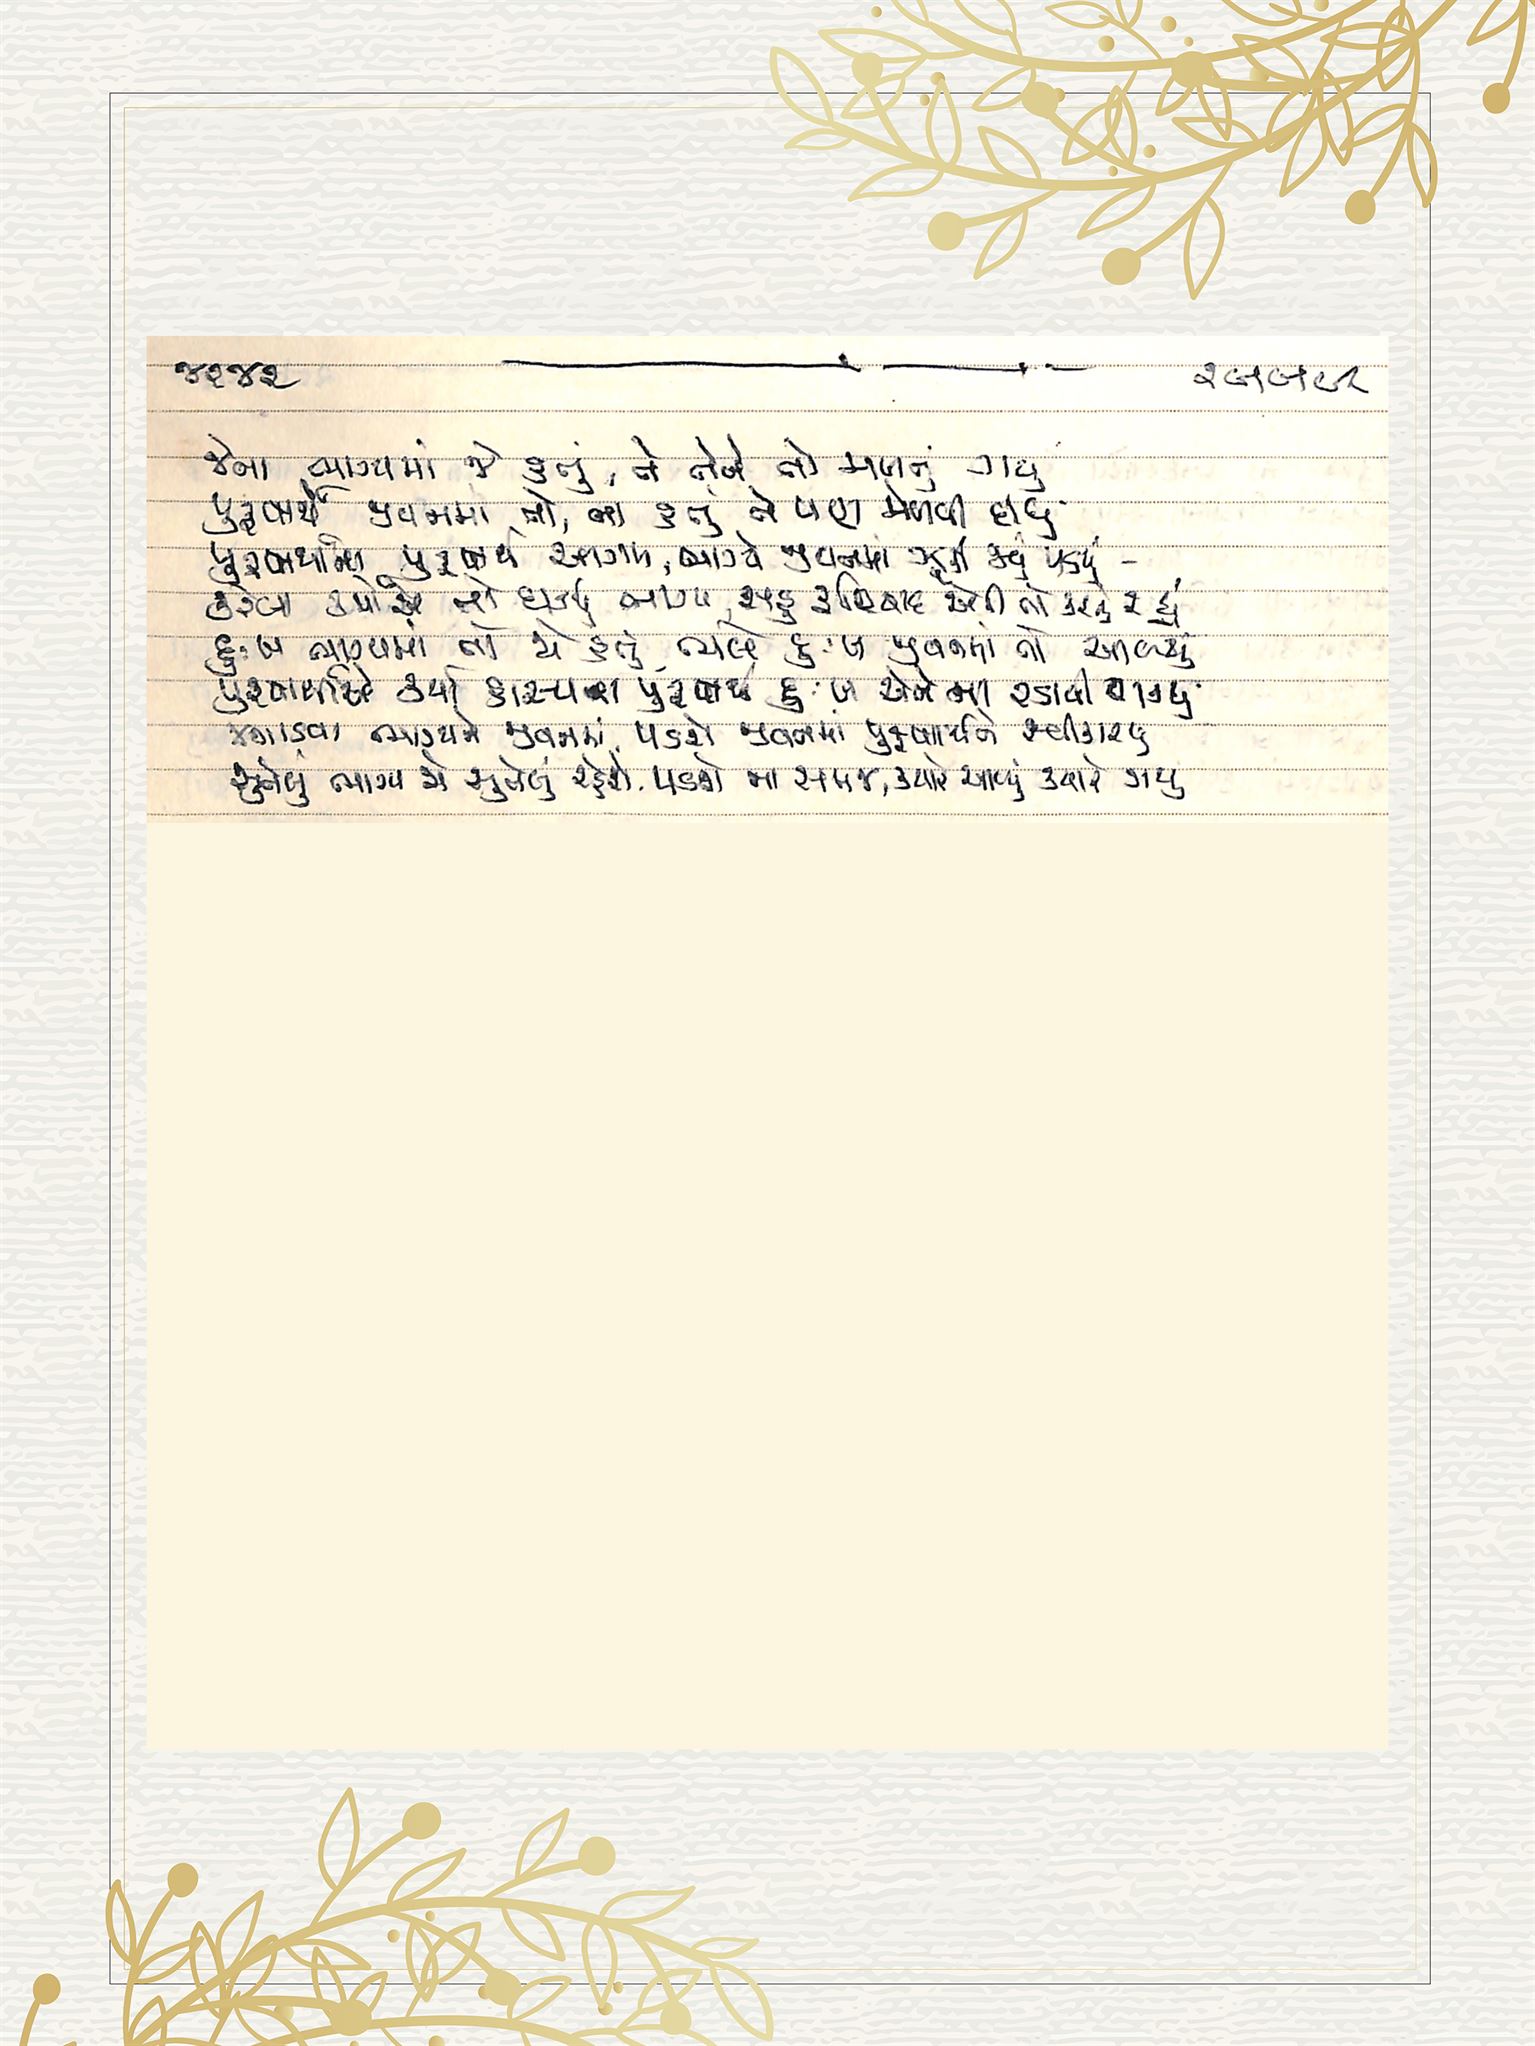 જેના ભાગ્યમાં જે હતું, તે તેને તો મળતું ગયું
પુરૂષાર્થે જીવનમાં તો, ના હતું તે પણ મેળવી લીધું
પુરૂષાર્થીના પુરૂષાર્થ આગળ, ભાગ્યે જીવનમાં ઝૂકી જવું પડયું -
કંઈકના તો ભાગ્ય, સહુ ફરિયાદ એની તો કરતું રહ્યું
દુઃખ ભાગ્યમાં તો જે હતું, ભલે દુઃખ જીવનમાં તો આવ્યું
પુરૂષાર્થીએ કર્યો હાસ્યનો પુરૂષાર્થ દુઃખ એને ના રડાવી શક્યું
જગાડવા ભાગ્યને જીવનમાં, પડશે જીવનમાં પુરુષાર્થને સ્વીકારવું
સુતેલું ભાગ્ય જો સુતેલું રહેશે, પડશે ના સમજ, ક્યારે આવ્યું ક્યારે ગયું